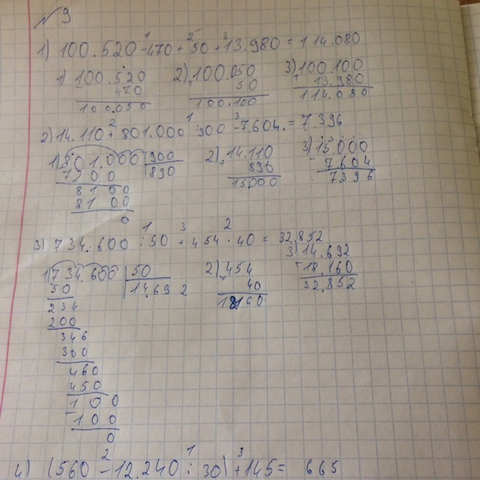 № 9
1) 100.520 - 470 + 50 + 13.980 = 114.080
1) 100.520 2) 100.050 3) 100.100
470 50 13.980
100.050 100.100 114.080
2) 14.110 + 801.000 : 900 - 7.604. = 7 396
1) 801.000 900 2) 14.110 3) 15.000
7200 890 890 7 604
8100 15000 7396
8100
0
3) 734.600 : 50 + 454 · 40 = 32.852
1) 734.600 50 2) 454 3) 14.692
50 14.692 40 18.160
234 18160 32.852
200
346
300
460
450
100
100
0
4) (560 - 12.240 : 30) + 145 = 665